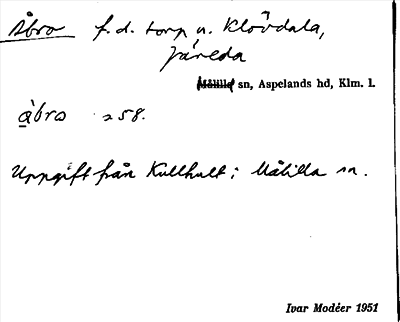 Åbro f. d. torp u. Klövdala,
Järeda
Målilla sn, Aspelands hd, Klm. l.
åbro 258.
Uppgift från Kullhult i Målilla sn.
Ivar Modéer 1951